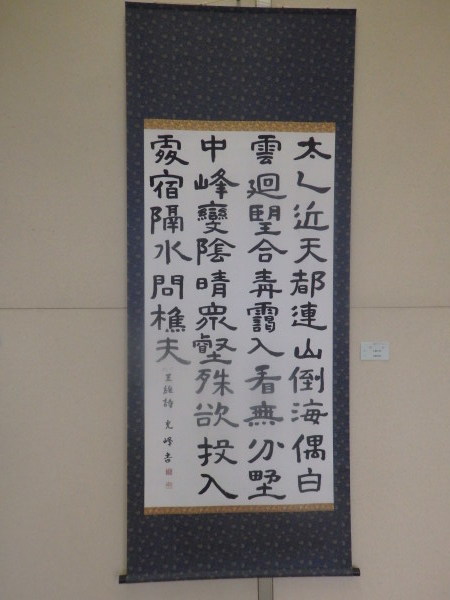 太乙近天都連山倒海偶白
雲廻望合青靄入看無分野
中峰變陰晴眾壑殊欲投人
處宿隔水問樵夫
王維詩